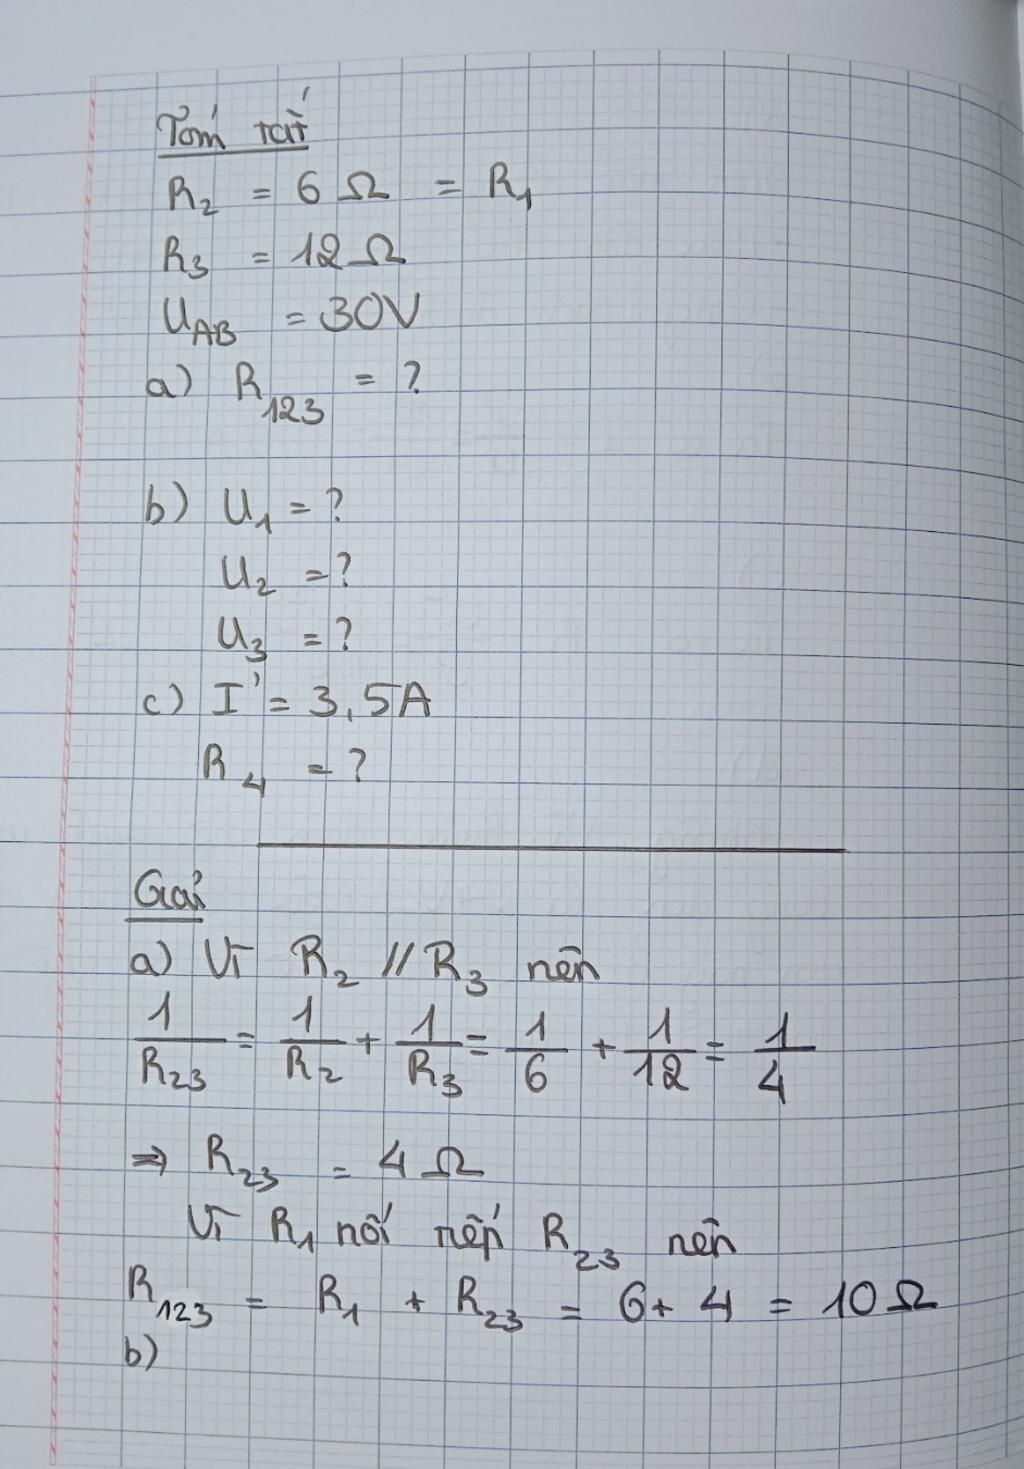 Tóm tắt
R₂ = 6 Ω = R₁
R₃ = 12 Ω
U_AB = 30V
a) R₁₂₃ = ?
b) U₁ = ?
U₂ = ?
U₃ = ?
c) I' = 3,5A
R₄ = ?
Giải
a) Vì R₂ // R₃ nên
1/R₂₃ = 1/R₂ + 1/R₃ = 1/6 + 1/12 = 1/4
⇒ R₂₃ = 4 Ω
Vì R₁ nối tiếp R₂₃ nên
R₁₂₃ = R₁ + R₂₃ = 6 + 4 = 10 Ω
b)